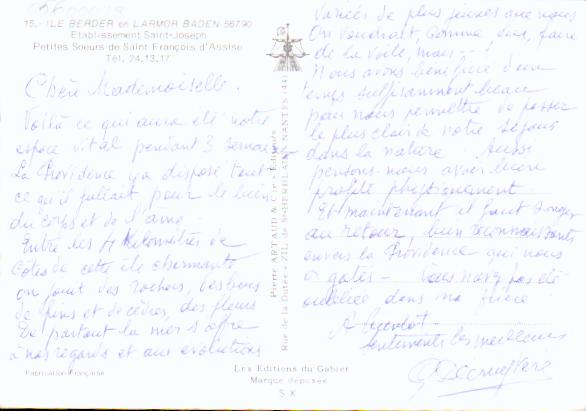 15.- ILE BERDER en LARMOR BADEN 56790
Etablissement Saint-Joseph
Petites Soeurs de Saint François d'Assise
Tél. 24.13.17
Chère Mademoiselle.
Voilà ce qui aura été notre
espace vital pendant 3 semaines
La Providence y a disposé tout
ce qu'il fallait pour le bien
du corps et de l'âme -
Entre les 4 kilomètres de
Côtes de cette île charmante
on peut des rochers, des bois
de pins et de cèdres, des fleurs
De partout la mer s'offre
à nos regards et aux évolutions
Fabrication Française
Pierre ARTAUD & Cie - Editeurs
Rue de la Dutée - Z.I.L. de St-HERBLAIN - NANTES (44)
Les Editions du Gabier
Marque déposée
S X
variées de plus jeunes que nous
On voudrait, comme eux, faire
de la voile, mais - - !
Nous avons bénéficié d'un
temps suffisamment beau
pour nous permettre de passer
le plus clair de notre séjour
dans la nature Aussi
pensons-nous avoir bien
profité physiquement.
Et maintenant il faut songer
au retour, bien reconnaissants
envers la Providence qui nous
a gâtés - Vous n'avez pas été
oubliée dans ma prière
A bientôt -
sentiments les meilleurs